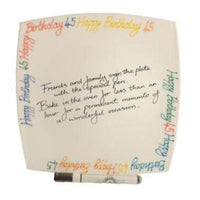 Birthday 45 Happy Birthday 45
Happy Birthday 45 Happy
Happy Birthday 45
Friends and family sign the plate
with the special pen.
Bake in the oven for less than an
hour for a permanent memento of
a wonderful occasion.
45 Happy Birthday 45 Happy Birthday 45